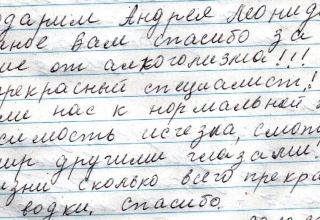 одарим Андрея Леонид
Вам спасибо за
ие от алкоголизма!!!
прекрасный специалист,!
ли нас к нормальной
симость исчезла, смотр
мир другими глазами!
изни сколько всего прекра
водки, спасибо,